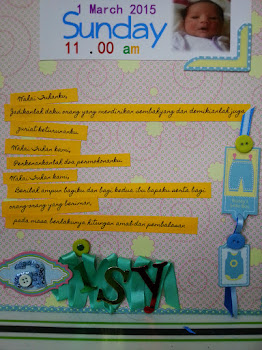 1 March 2015
Sunday
11.00 am
Wahai Tuhanku,
Jadikanlah daku orang yang mendirikan sembahyang dan demikianlah juga
zuriat keturunanku
Wahai Tuhan kami,
Perkenankanlah doa permohonanku
Wahai Tuhan kami,
Berilah ampun bagiku dan bagi kedua ibu bapaku serta bagi
orang-orang yang beriman
pada masa berlakunya hitungan amal dan pembalasan
isy